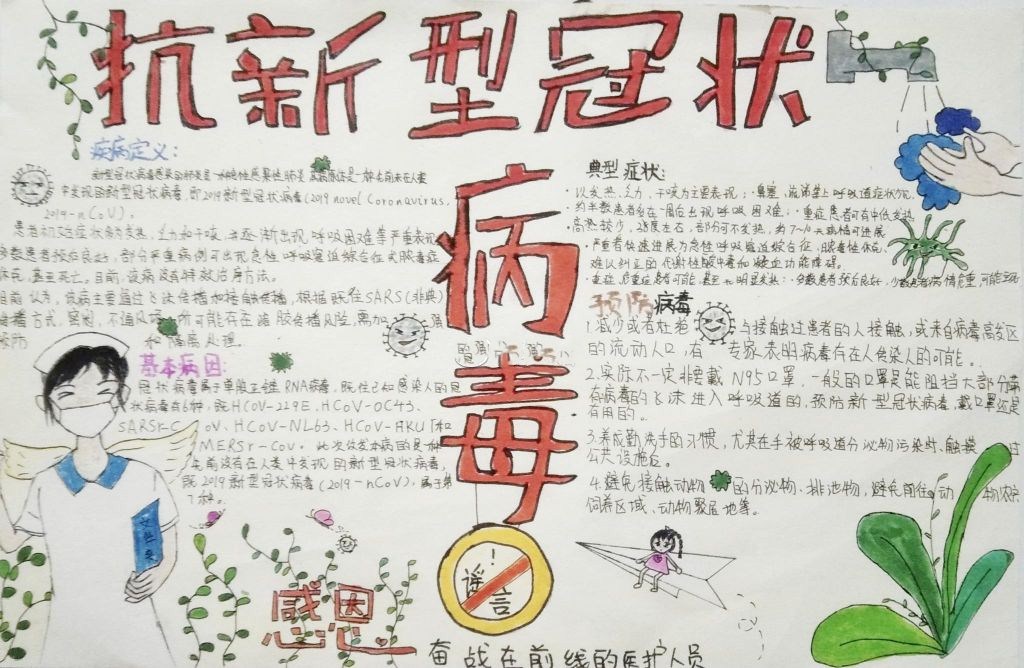 抗新型冠状
病毒
疾病定义:
新型冠状病毒感染的肺炎是一种急性感染性肺炎,其病原体是一种先前未在人类
中发现的新型冠状病毒,即2019新型冠状病毒(2019 novel Coronavirus,
2019-nCoV)。
患者初期症状多为发热、乏力和干咳,并逐渐出现呼吸困难等严重表现
多数患者预后良好,部分严重病例可出现急性呼吸窘迫综合征或脓毒症
休克,甚至死亡。目前,该病没有特效治疗方法。
目前认为,该病主要通过飞沫传播和接触传播,根据既往SARS(非典)
传播方式,密闭、不通风
所可能存在
胶传播风险,需加
强
和隔离处理
基本病因:
冠状病毒属于单股正链RNA病毒,既往已知感染人的冠
状病毒有6种,既HCoV-229E、HCoV-OC43、
SARSr-CoV、HCoV-NL63、HCoV-HKU1和
MERSr-Cov。此次役发本病的是一种
先前没有在人类中发现的新型冠状病毒,
既2019新型冠状病毒(2019-nCoV),属于第
7种。
典型症状:
·以发热、乏力、干咳为主要表现;·鼻塞、流涕等上呼吸道症状
·约半数患者多在一周后出现呼吸困难;·重症患者可有中低发热
·高热较少,38度左右,部分可不发热,约7~10天病情可进展
·严重者快速进展为急性呼吸窘迫综合征、脓毒性休克、
难以纠正的代谢性酸中毒和凝血功能障碍。
·重症、危重症患者可能甚至无明显发热;·多数患者预后良好,少数患者病情危重,可能
预防病毒
1.减少或者杜绝与接触过患者的人接触,或来自病毒高发区
的流动人口,有专家表明病毒存在人传染人的可能。
2.实际不一定非要戴N95口罩,一般的口罩是能阻挡大部分带
有病毒的飞沫进入呼吸道的,预防新型冠状病毒,戴口罩还是
有用的。
3.养成勤洗手的习惯,尤其在手被呼吸道分泌物污染时、触摸过
公共设施后。
4.避免接触动物的分泌物、排泄物,避免前往动物农
饲养区域、动物聚居地等。
文件夹
感恩
!
谣言
奋战在前线的医护人员